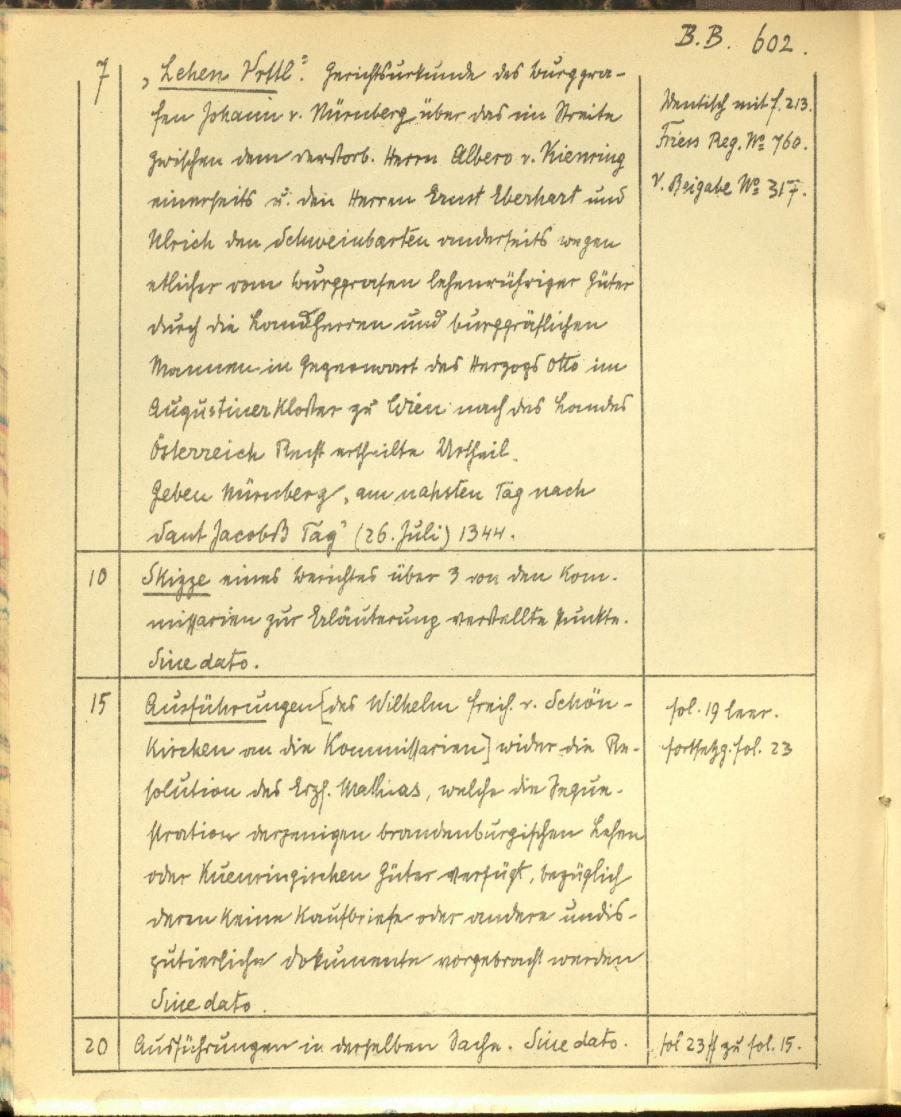 B.B. 602.
7 „Lehen Vrttl“. Gerichtsurkunde des Burggra-
fen Johann v. Nürnberg über das im Streite
zwischen dem verstorb. Herrn Albero v. Kienring
einerseits u. den Herren Ernst Eberhart und
Ulrich den Schweinbarten anderseits wegen
etlicher vom Burggrafen lehenrühriger Güter
durch die Landherren und burggräflichen
Mannen in Gegenwart des Herzogs Otto im
Augustiner Kloster zu Wien nach des Landes
Österreich Recht ertheilte Urtheil.
Geben Nürnberg „am nahsten Tag nach
Sant Jacobß Tag“ (26. Juli) 1344.
Identisch mit f. 213.
Friess Reg. No 760.
V. Beigabe No 317.
10 Skizze eines Berichtes über 3 von den Kom-
missarien zur Erläuterung gestellte Punkte.
Sine dato.
15 Ausführungen [des Wilhelm Freih. v. Schön-
kirchen an die Kommissarien] wider die Re-
solution des Erzh. Mathias, welche die Seque-
stration derjenigen brandenburgischen Lehen
oder Kuenringischen Güter verfügt, bezüglich
deren keine Kaufbriefe oder andere undis-
putierliche Dokumente vorgebracht werden
Sine dato.
fol. 19 leer.
Fortsetzg. fol. 23
20 Ausführungen in derselben Sache. Sine dato.
fol 23 ff zu fol. 15.